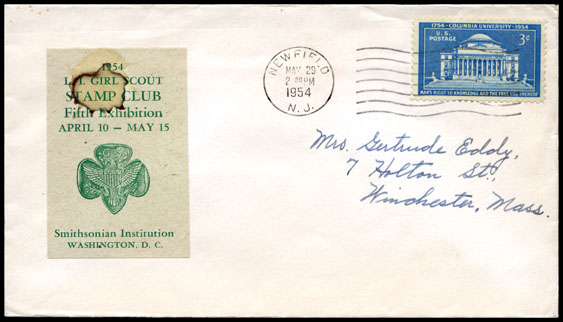 1954
GIRL SCOUT
STAMP CLUB
Fifth Exhibition
APRIL 10 — MAY 15
Smithsonian Institution
WASHINGTON, D. C.
NEWFIELD
MAY 29
PM
1954
N. J.
1754 - COLUMBIA UNIVERSITY - 1954
U. S. POSTAGE
3¢
MAN'S RIGHT TO KNOWLEDGE AND THE FREE USE THEREOF
Mrs. Gertrude Eddy,
7 Holton St.,
Winchester, Mass.